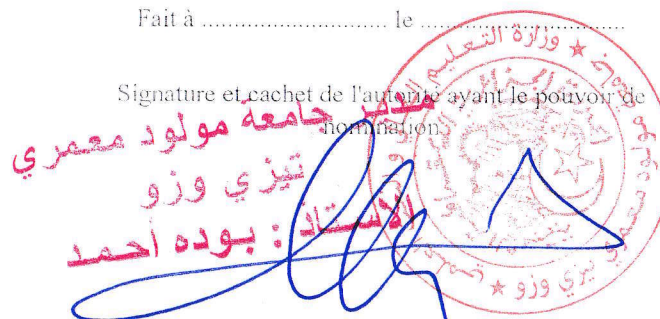 Fait à ............................ le ...............................
Signature et cachet de l'autorité ayant le pouvoir de
nomination
مدير جامعة مولود معمري
تيزي وزو
الأستاذ : بوده احمد
وزارة التعليم
تيزي وزو